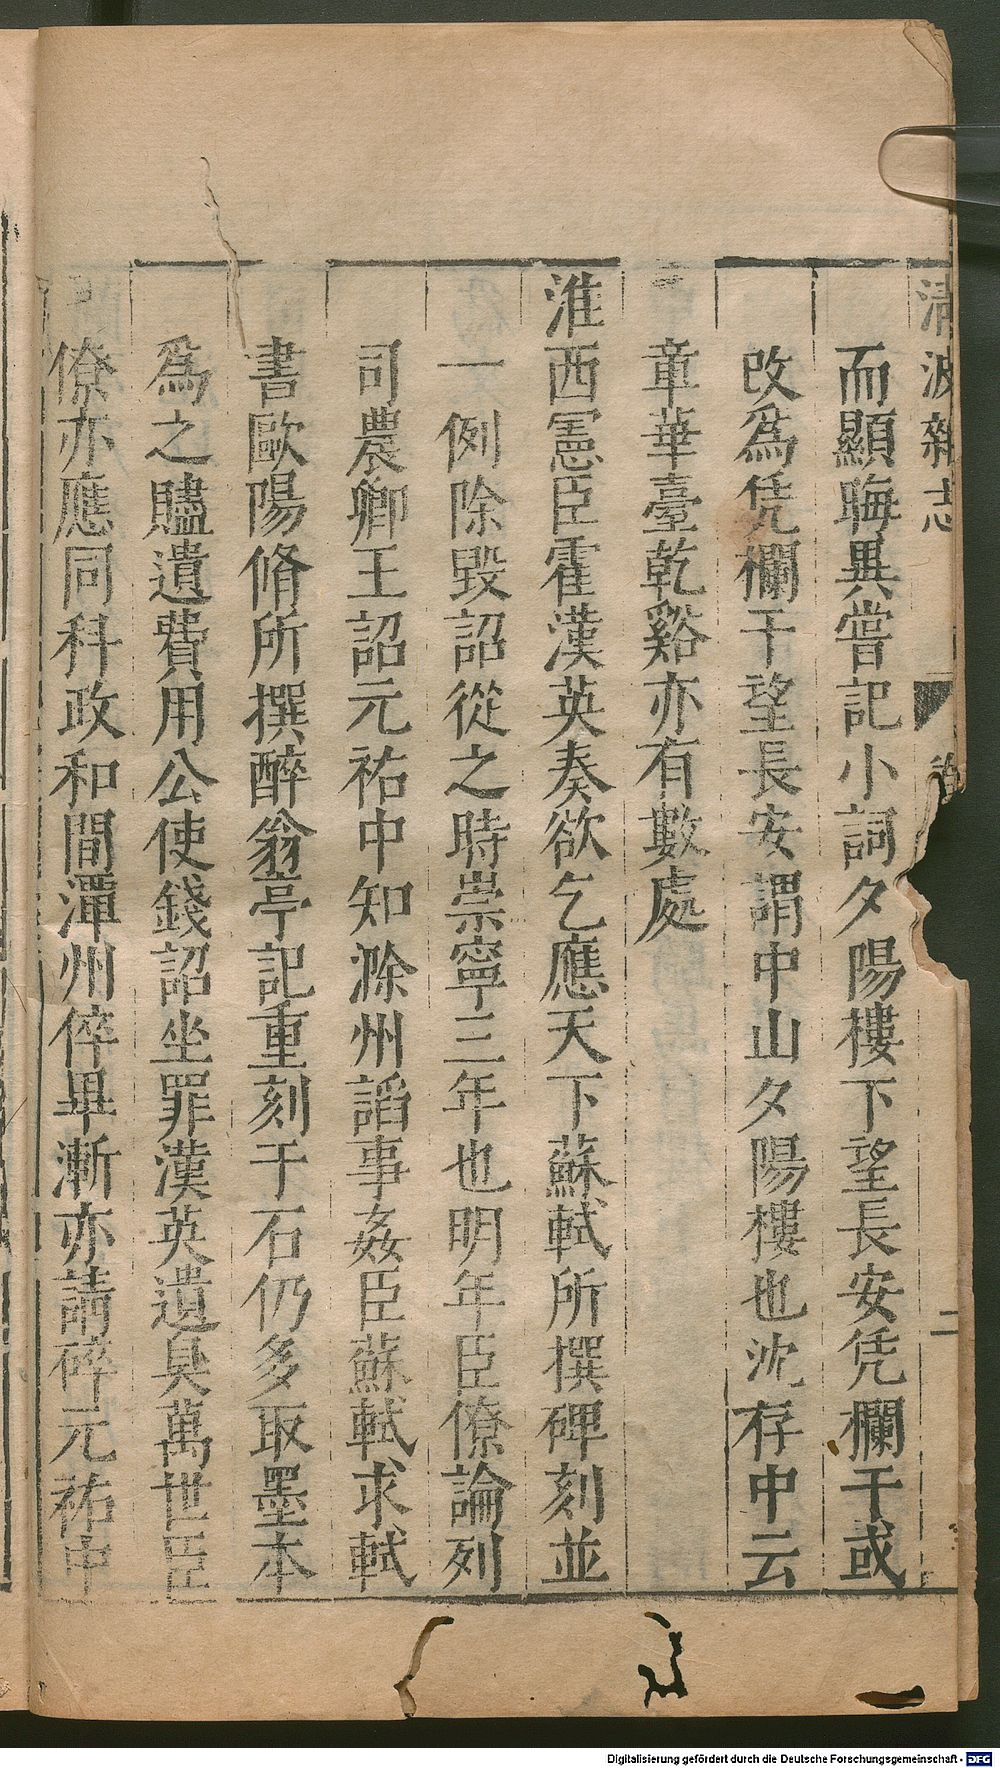 清波雜志
二
而顯晦異嘗記小詞夕陽樓下望長安凭欄干或
改為凭欄干望長安謂中山夕陽樓也沈存中云
章華臺乾谿亦有數處
淮西憲臣霍漢英奏欲乞應天下蘇軾所撰碑刻並
一例除毀詔從之時崇寧三年也明年臣僚論列
司農卿王詔元祐中知滁州謟事姦臣蘇軾求軾
書歐陽脩所撰醉翁亭記重刻于石仍多取墨本
為之贐遺費用公使錢詔坐罪漢英遺臭萬世臣
僚亦應同科政和間潭州倅畢漸亦請碎元祐中
Digitalisierung gefördert durch die Deutsche Forschungsgemeinschaft - DFG